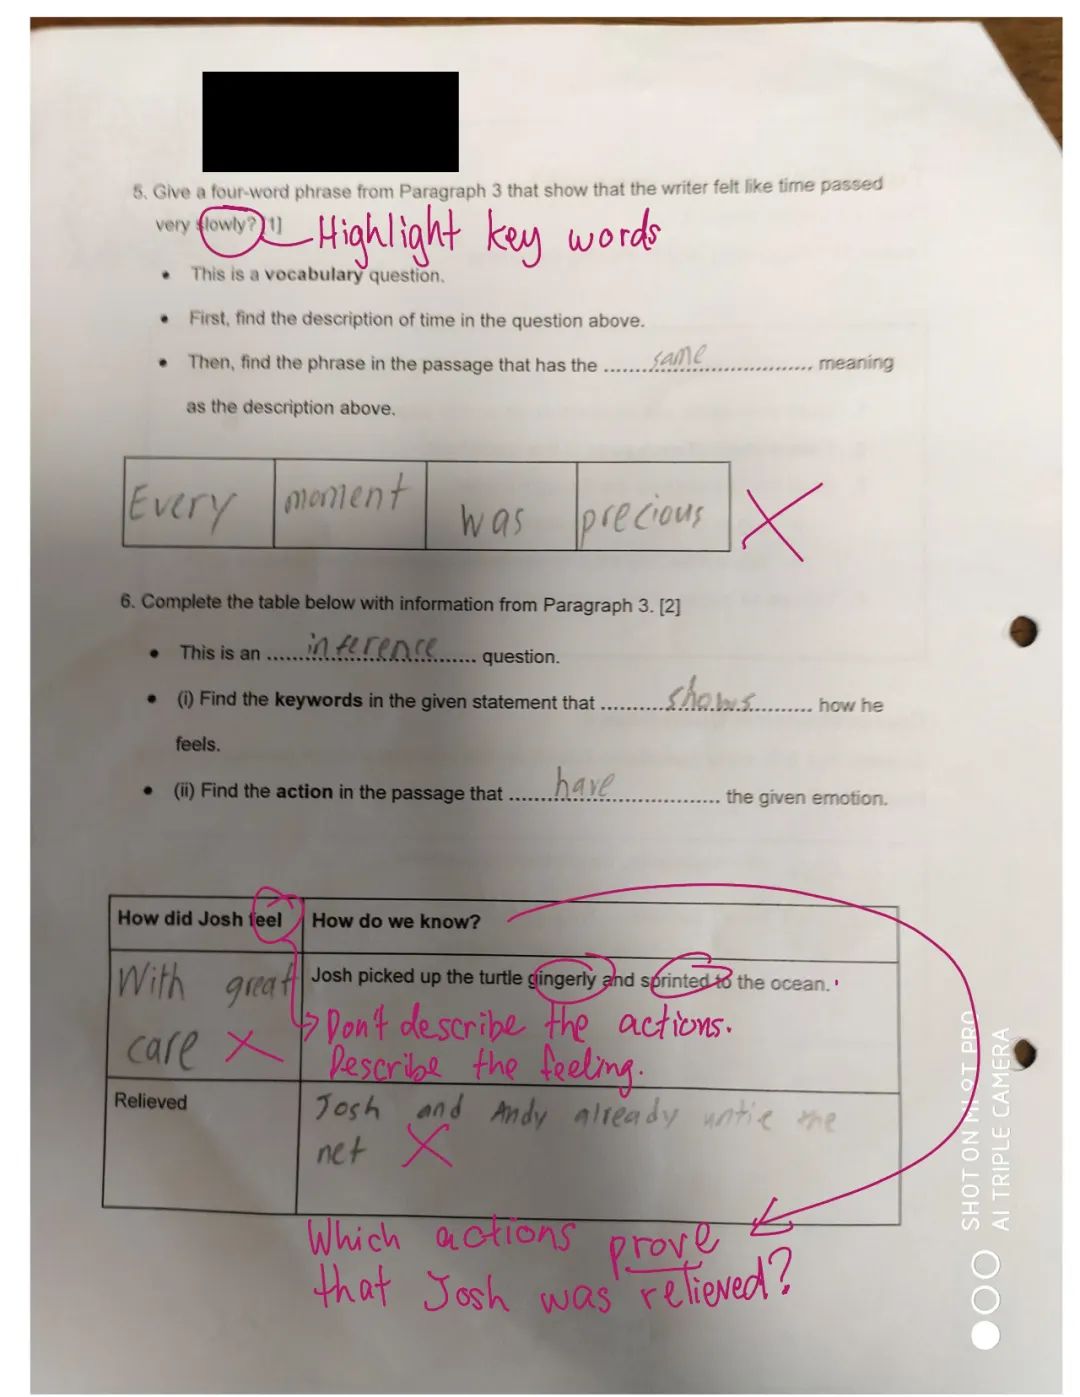 5. Give a four-word phrase from Paragraph 3 that show that the writer felt like time passed
very slowly? [1]
Highlight key words
• This is a vocabulary question.
• First, find the description of time in the question above.
• Then, find the phrase in the passage that has the ........same.................... meaning
as the description above.
Every moment was precious
6. Complete the table below with information from Paragraph 3. [2]
• This is an ......inference...... question.
• (i) Find the keywords in the given statement that ..........shows.......... how he
feels.
• (ii) Find the action in the passage that .......have.................. the given emotion.
How did Josh feel How do we know?
With great
care
Josh picked up the turtle gingerly and sprinted to the ocean.
Don't describe the actions.
Describe the feeling.
Relieved
Josh and Andy already untie the
net
Which actions prove
that Josh was relieved?
SHOT ON MI 9T PRO
AI TRIPLE CAMERA